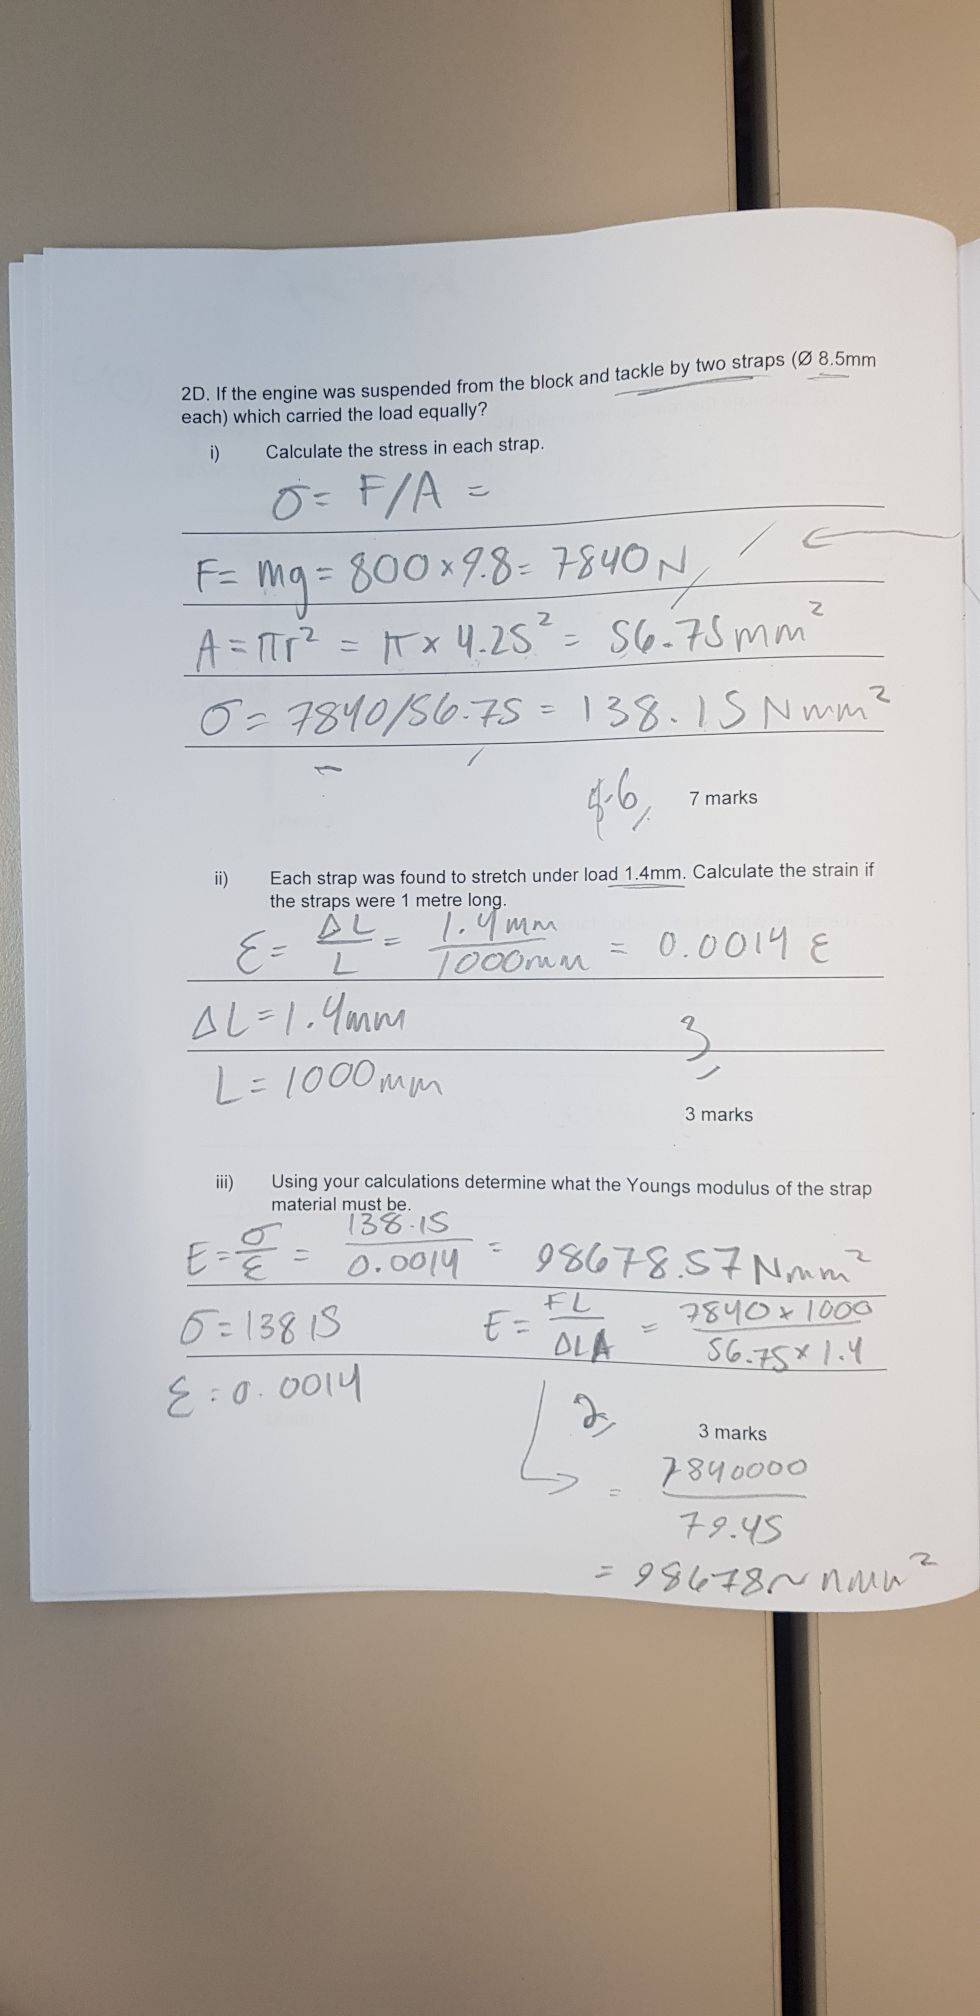 2D. If the engine was suspended from the block and tackle by two straps (Ø 8.5mm
each) which carried the load equally?
i) Calculate the stress in each strap.
σ = F/A =
F = mg = 800 x 9.8 = 7840 N
A = πr² = π x 4.25² = 56.75 mm²
σ = 7840/56.75 = 138.15 N mm²
6 7 marks
ii) Each strap was found to stretch under load 1.4mm. Calculate the strain if
the straps were 1 metre long.
ε = ΔL/L = 1.4mm/1000mm = 0.0014 ε
ΔL = 1.4mm
3
L = 1000mm
3 marks
iii) Using your calculations determine what the Youngs modulus of the strap
material must be.
E = σ/ε = 138.15/0.0014 = 98678.57 N mm²
σ = 138 15 E = FL/ΔLA = 7840 x 1000/56.75 x 1.4
ε = 0.0014
2
3 marks
= 7840000/79.45
= 98678 N mm²